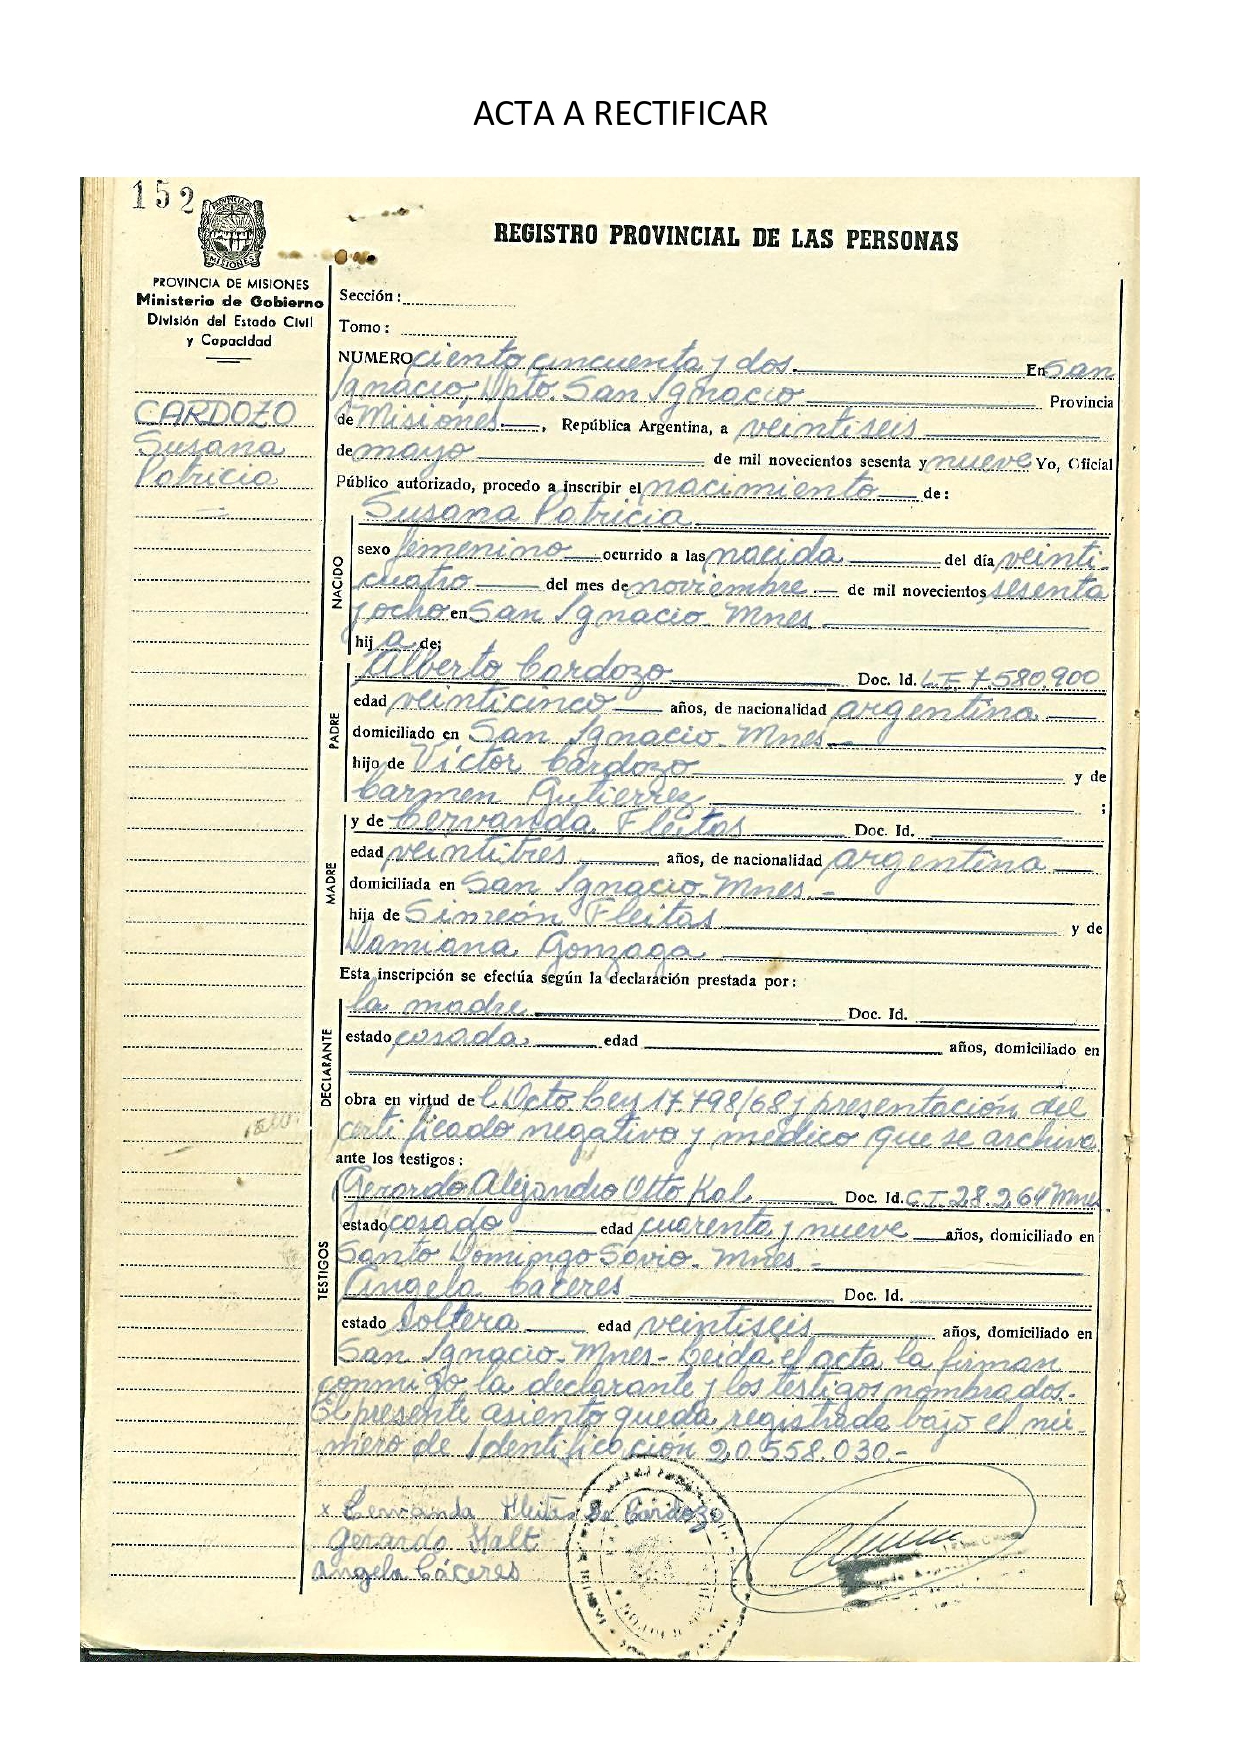 ACTA A RECTIFICAR
152
REGISTRO PROVINCIAL DE LAS PERSONAS
PROVINCIA DE MISIONES
Ministerio de Gobierno
División del Estado Civil
y Capacidad
CARDOZO
Susana
Patricia
Sección:
Tomo:
NUMERO ciento cincuenta y dos. En San
Ignacio, Dpto. San Ignacio Provincia
de Misiones , República Argentina, a veintiseis
de mayo de mil novecientos sesenta y nueve Yo, Oficial
Público autorizado, procedo a inscribir el nacimiento de:
NACIDO
Susana Patricia
sexo femenino ocurrido a las nacida del día veinti-
cuatro del mes de noviembre de mil novecientos sesenta
y ocho en San Ignacio. Mnes
hij a de;
PADRE
Alberto Cardozo Doc. Id. L.E. 7.580.900
edad veinticinco años, de nacionalidad argentina
domiciliado en San Ignacio. Mnes.-
hijo de Víctor Cardozo y de
Carmen Gutierrez ;
MADRE
y de Cervanda Fleitas Doc. Id.
edad veintitres años, de nacionalidad argentina
domiciliada en San Ignacio. Mnes.-
hija de Simeón Fleitas y de
Damiana Gonzaga
Esta inscripción se efectúa según la declaración prestada por:
DECLARANTE
la madre Doc. Id.
estado casada edad años, domiciliado en
obra en virtud de l Dcto. Ley 17.798/68 y presentación del
certificado negativo y médico que se archiva
ante los testigos:
TESTIGOS
Gerardo Alejandro Otto Kal Doc. Id. C.I. 28.264 Mnes
estado casado edad cuarenta y nueve años, domiciliado en
Santo Domingo Savio. Mnes.-
Angela Caceres Doc. Id.
estado Soltera edad veintiseis años, domiciliado en
San Ignacio-Mnes- Leída el acta la firman
conmigo la declarante y los testigos nombrados.-
El presente asiento queda registrado bajo el nú-
mero de Identificación 20.558.030.-
x Cervanda Fleitas de Cardozo
Gerardo
Angela Cáceres